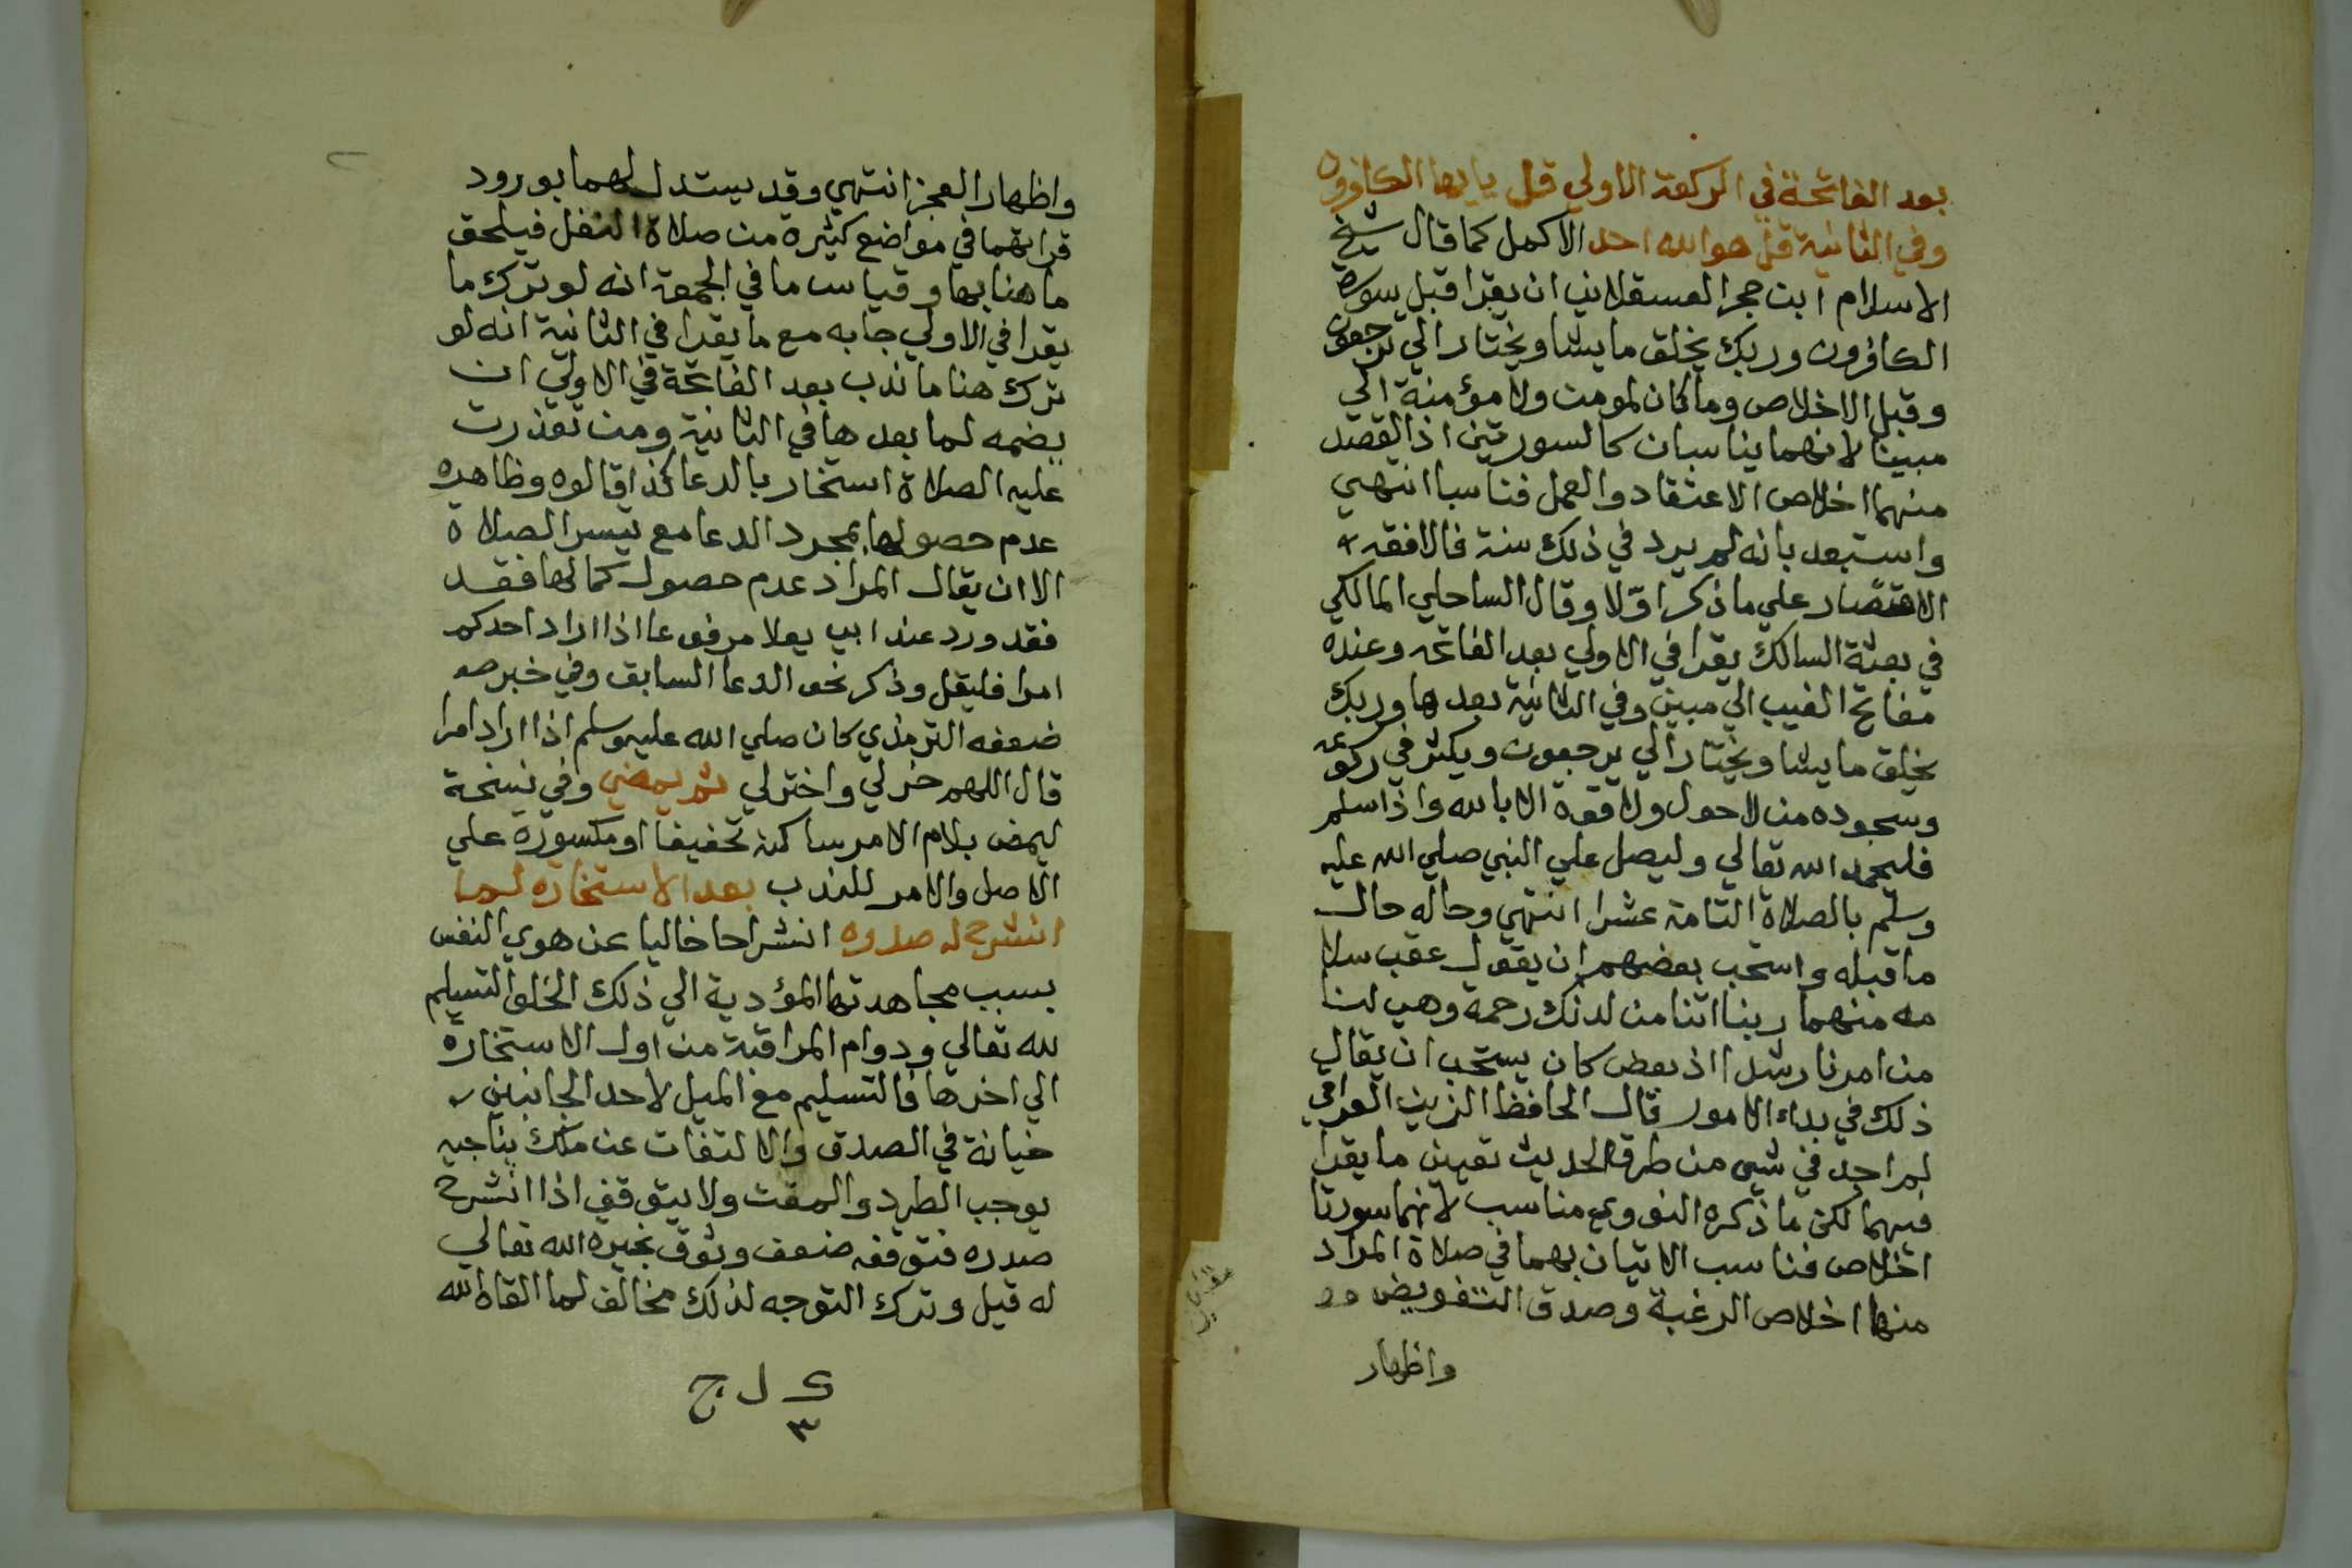 بعد الفاتحة في الركعة الاولي قل يايها الكافرون
وفي الثانية قل هو الله احد الاكمل كما قال شيخ
الاسلام ابن حجر العسقلاني ان يقرا قبل سورة
الكافرون وربك يخلق ما يشا ويختار الي ترجعون
وقبل الاخلاص وما كان لمومن ولا مؤمنة الي
مبينا لانهما يناسبان كالسورتين اذ القصد
منهما اخلاص الاعتقاد والعمل فناسبا انتهي
واستبعد بانه لم يرد في ذلك سنة فالافقه
الاقتصار علي ما ذكر اوّلا وقال الساحلي المالكي
في بعثة السالك يقرا في الاولي بعد الفاتحه وعنده
مفاتح الغيب الي مبين وفي الثانية بعدها وربك
يخلق ما يشا ويختار الي يرجعون ويكثر في ركوعه
وسجوده من لاحول ولا قوة الا بالله واذا سلم
فليحمد الله تعالي وليصل علي النبي صلي الله عليه
وسلم بالصلاة التامة عشرا انتهي وحاله حال
ما قبله واستحب بعضهم ان يقول عقب سلا
مه منهما ربنا اتنا من لدنك رحمة وهيي لنا
من امرنا رشدا اذ بعض كان يستحب ان يقال
ذلك في بداء الامور قال الحافظ الزين العراقي
لم اجد في شيى من طرق الحديث تعيين ما يقرا
فيهما لكن ما ذكره النووي مناسب لانهما سورتا
اخلاص فناسب الاتيان بهما في صلاة المراد
منها اخلاص الرغبة وصدق التفويض
واظهار
واظهار العجز انتهي وقد يستدل لهما بورود
قراتهما في مواضع كثيره من صلاة النفل فيلحق
ما هنا بها وقياس ما في الجمعة انه لو ترك ما
يقرا في الاولي جا به مع ما يقرا في الثانية انه لو
ترك هنا ما ندب بعد الفاتحة في الاولي ان
يضمه لما بعدها في الثانية ومن تعذرت
عليه الصلاة استخار بالدعا كذا قالوه وظاهره
عدم حصولها بمجرد الدعا مع تيسر الصلاة
الا ان يقال المراد عدم حصول كمالها فقد
فقد ورد عند ابي يعلا مرفوعا اذا اراد احدكم
امرا فليقل وذكر نحو الدعا السابق وفي خبر صو
ضعفه الترمذي كان صلي الله عليه وسلم اذا اراد امرا
قال اللهم خر لي واختر لي ثم يمضي وفي نسخة
ليمض بلام الامر ساكنة تخفيفا او مكسورة علي
الاصل والامر للندب بعد الاستخاره لما
انشرح له صدره انشراحا خاليا عن هوي النفس
بسبب مجاهدتها المؤدية الي ذلك الخلق التسليم
لله تعالي ودوام المراقبة من اول الاستخارة
الي اخرها فالتسليم مع الميل لاحد الجانبين
خيانة في الصدق والالتفات عن ملك يناجيه
يوجب الطرد والمقت ولا يتوقف اذا انشرح
صدره فتوقفه ضعف وثوق بخيرة الله تعالي
له قيل وترك التوجه لذلك مخالف لما القاه الله